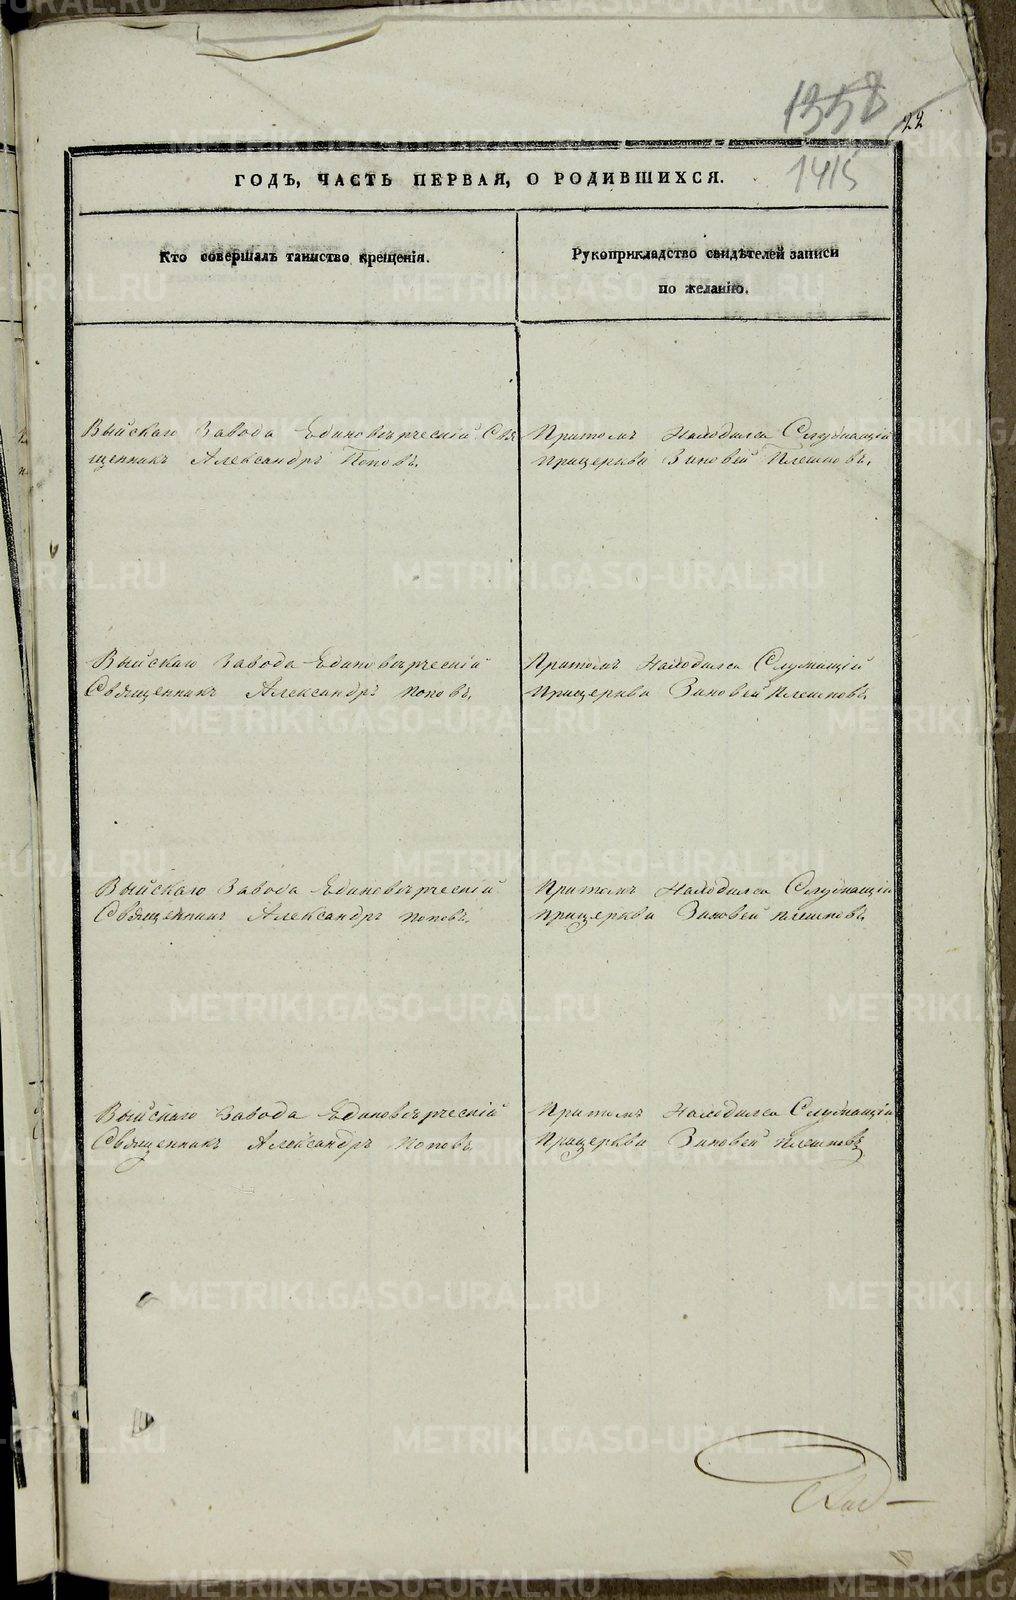 1358
22
ГОДЪ, ЧАСТЬ ПЕРВАЯ, О РОДИВШИХСЯ.
1415
Кто совершалъ таинство крещенія.
Рукоприкладство свидѣтелей записи
по желанію.
Выйскаго Завода Единовѣрческій Свя
щенникъ Александръ Поповъ.
Притомъ находился Служащій
прицеркви Зиновей Плешковъ.
Выйскаго Завода Единовѣрческій
Священникъ Александръ Поповъ.
Притомъ находился Служащій
прицеркви Зиновей Плешковъ.
Выйскаго Завода Единовѣрческій
Священникъ Александръ Поповъ.
Притомъ находился Служащій
прицеркви Зиновей Плешковъ.
Выйскаго Завода Единовѣрческій
Священникъ Александръ Поповъ.
Притомъ находился Служащій
Прицеркви Зиновей Плешковъ
METRIKI.GASO-URAL.RU